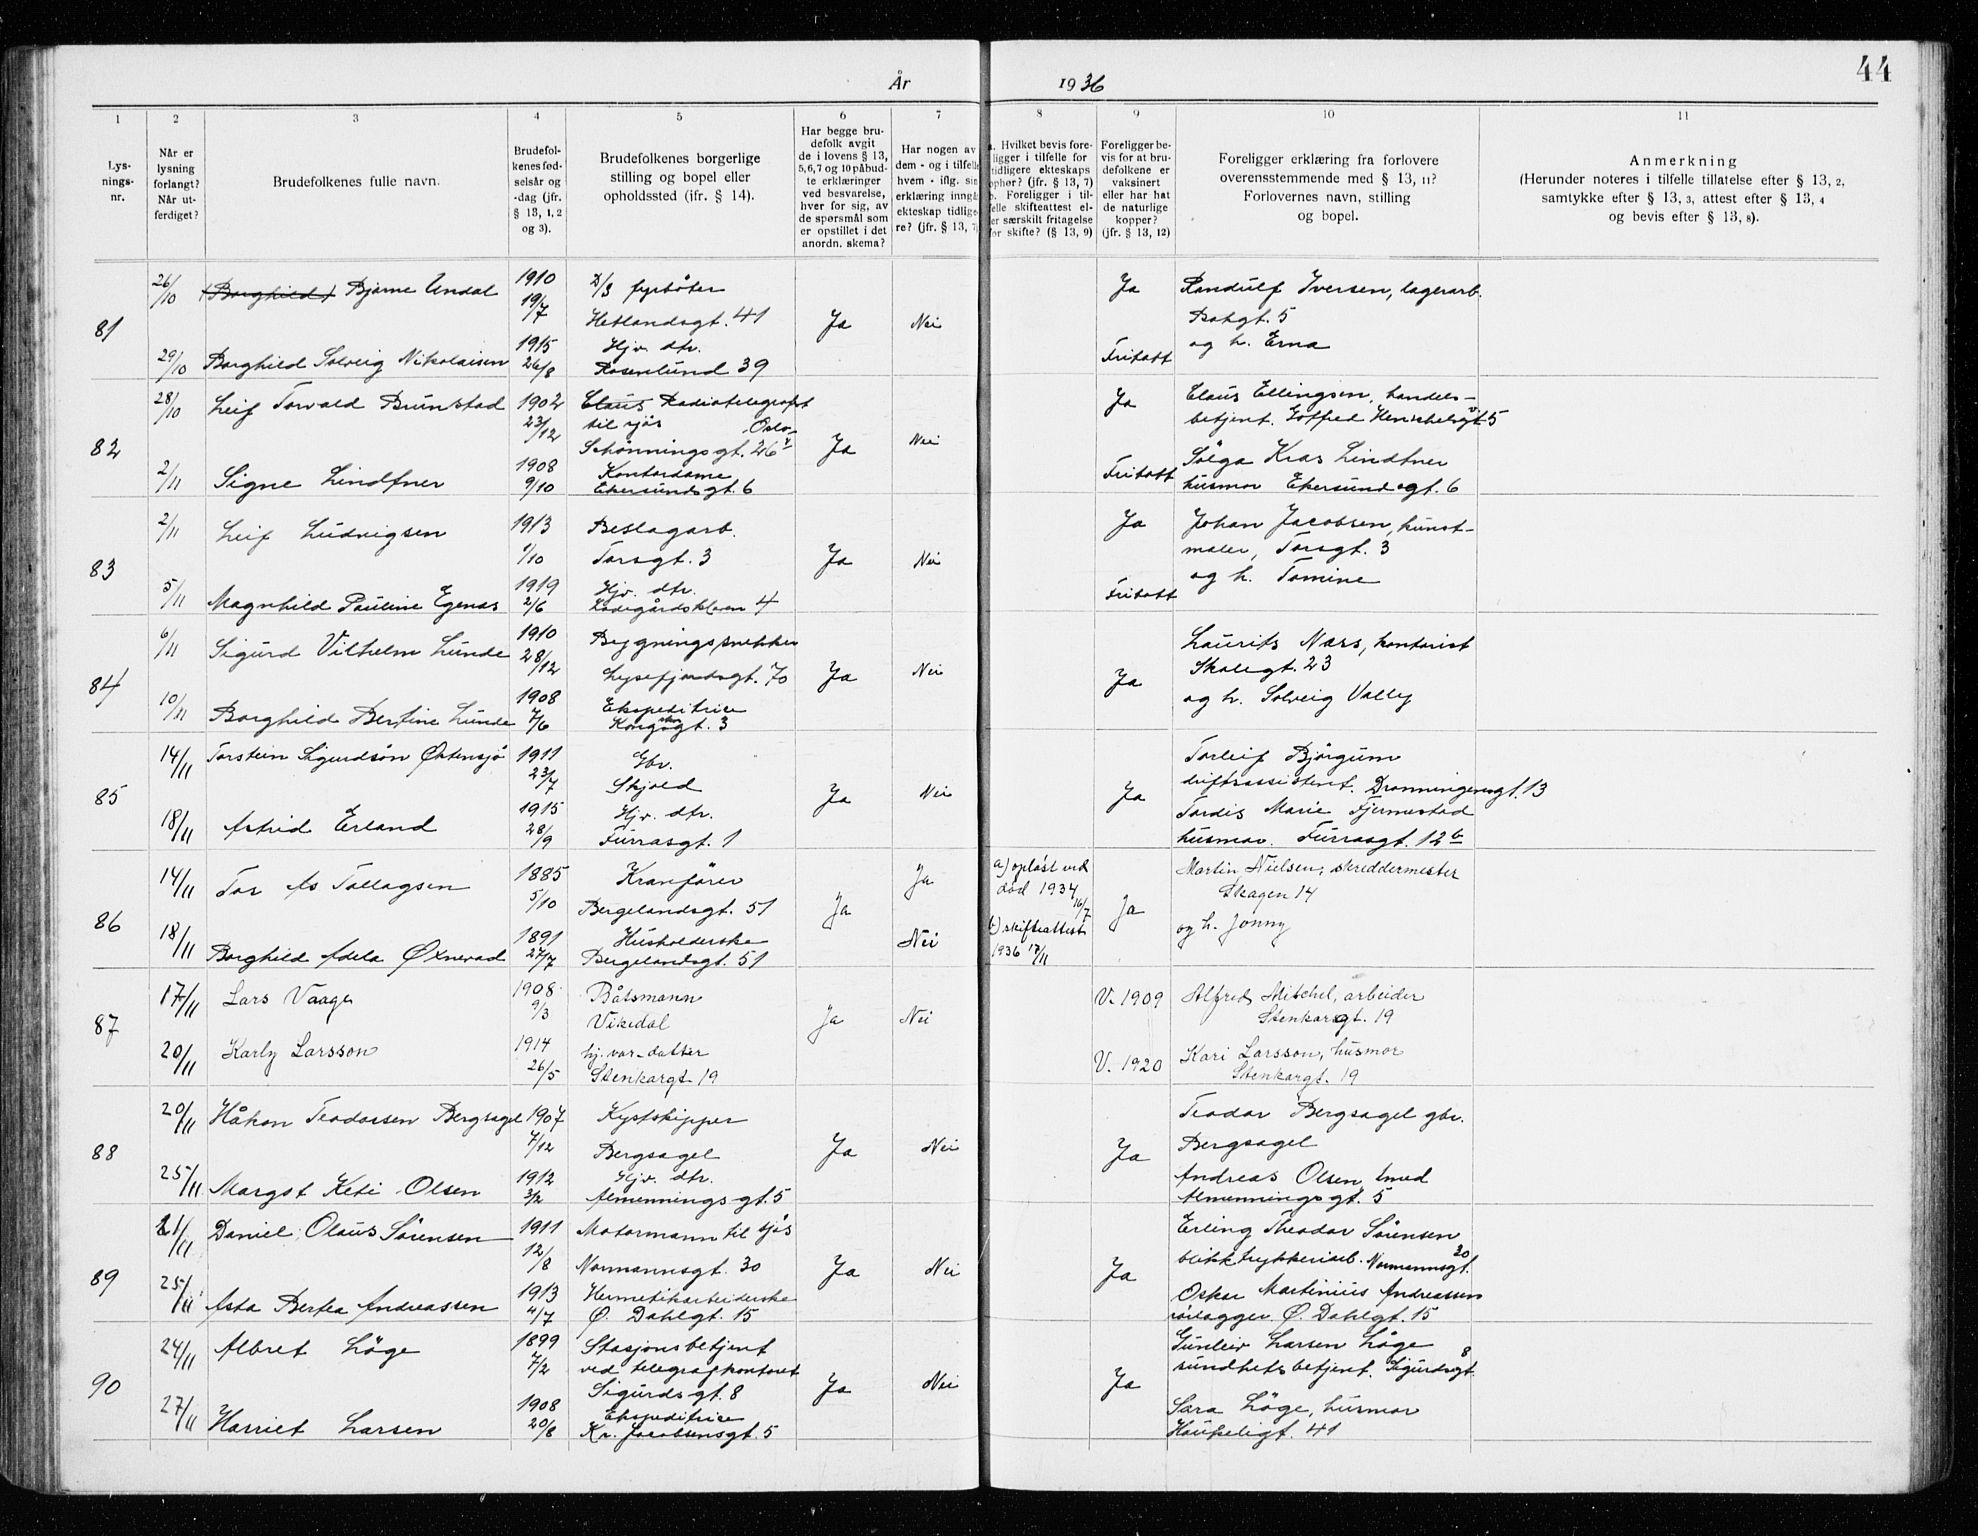 44
År 1936
1 2 3 4 5 6 7 8 9 10 11
Lys-
nings-
nr.
Når er
lysning
forlangt?
Når ut-
ferdiget?
Brudefolkenes fulle navn.
Brudefol-
kenes fød-
selsår og
-dag (jfr.
§ 13, 1, 2
og 3).
Brudefolkenes borgerlige
stilling og bopel eller
opholdssted (ifr. § 14).
Har begge bru-
defolk avgit
de i lovens § 13,
5,6,7 og 10 påbud-
te erklæringer
ved besvarelse,
hver for sig, av
de spørsmål som
er opstillet i det
anordn. skema?
Har nogen av
dem - og i tilfelle
hvem - iflg. sin
erklæring inngå
ekteskap tidlige-
re? (jfr. § 13, 7
a. Hvilket bevis fore-
ligger i tilfelle for
tidligere ekteskaps
ophør? (jfr. § 13, 7)
b. Foreligger i til-
felle skifteattest el-
er særskilt fritagelse
for skifte? (§ 13, 9)
Foreligger be-
vis for at bru-
defolkene er
vaksinert
eller har hat
de naturlige
kopper?
(jfr. § 13, 12)
Foreligger erklæring fra forlovere
overensstemmende med § 13, 11?
Forlovernes navn, stilling
og bopel.
Anmerkning
(Herunder noteres i tilfelle tillatelse efter § 13, 2,
samtykke efter § 13, 3, attest efter § 13, 4
og bevis efter § 13, 8).
81
26/10 (Borghild) Bjarne Undal 1910 19/7 D/S fyrbøter
Hetlandsgt. 41 Ja Nei
Ja Randulf Iversen, lagerarb.
5
og h. Erna
29/10 Borghild Solveig Nikolaisen 1915 26/8 Hjv. dtr.
Rosenlund 39 Fritatt
82
28/10 Leif Torvald Brunstad 1902 23/12 Claus Radiotelegrafist
til sjøs Oslo
Schønningsgt. 26 Ja Nei
Ja Claus Ellingsen, handels-
betjent. Gotfred Henschelsgt 5
2/11 Signe Lindtner 1908 9/10 Kontordame
Ekersundsgt. 6 Fritatt
Sølga Lindtner
husmor Ekersundsgt. 6
83
2/11 Leif Ludvigsen 1913 1/10 Beslagarb.
Torsgt. 3 Ja Nei
Ja Johan Jacobsen, kunst-
maler, Torsgt. 3
og h. Tomine
5/11 Magnhild Pauline Egenes 1919 2/6 Hjv. dtr.
Ladegårdskleven 4 Fritatt
84
6/11 Sigurd Vilhelm Lunde 1910 28/12 Bygningssnekker
Lysefjordsgt. 70 Ja Nei
Ja Laurits Næss, kontorist
Skolegt. 23
og h. Solveig Vally
10/11 Borghild Bertine Lunde 1908 7/6 Ekspeditrise
3
85
14/11 Torstein Sigurdsøn Østensjø 1911 23/7 Gbr.
Skjold Ja Nei
Ja Torleif Bjørgum
driftsassistent. Dronningensgt. 13
18/11 Astrid Erland 1915 28/9 Hjv. dtr.
Furrasgt. 1
Tordis Marie Fjermestad
husmor. Furrasgt. 12b
86
14/11 Tor As Tollagsen 1885 5/10 Kranfører
Bergelandsgt. 51 Ja Ja
a) opløst ved
død 1934
16/7
b) skifteattest
1936 17/11
Ja Martin Nielsen, skreddermester
Skagen 14
og h. Jonny
18/11 Borghild Adela Øxnevad 1891 27/7 Husholderske
Bergelandsgt. 51 Nei
87
17/11 Lars Vaage 1908 9/3 Båtsmann
Vikedal Ja Nei
V. 1909 Alfred Mitchel, arbeider
Stenkargt. 19
20/11 Karly Larsson 1914 26/5 hj. vær. datter
Stenkargt. 19
V. 1920 Kari Larsson, husmor
Stenkargt. 19
88
20/11 Håkon Teodorsen Bergsagel 1907 7/12 Kystskipper
Bergsagel Ja Nei
Ja Teodor Bergsagel gbr.
Bergsagel
25/11 Margot Keti Olsen 1912 3/2 Hjv. dtr.
Almenningsgt. 5
Andreas Olsen smed
Almenningsgt. 5
89
21/11 Daniel Olaus Sørensen 1911 12/8 Motormann til sjøs
Normannsgt. 30 Ja Nei
Ja Erling Theodor Sørensen
blikktrykkeriarb. Normannsgt. 30
25/11 Asta Bertea Andreassen 1913 4/7 Hermetikarbeiderske
Ø. Dahlgt. 15
Oskar Martinius Andreassen
rørlegger Ø. Dahlgt. 15
90
24/11 Albret Løge 1899 7/2 Stasjonsbetjent
ved telegrafkontoret
Sigurdsgt. 8 Ja Nei
Ja Gunleiv Larsen Løge
sundhetsbetjent. Sigurdsgt. 8
27/11 Harriet Larsen 1908 20/8 Ekspeditrise
Kr. Jacobsensgt. 5
Sara Løge, husmor
Haukeligt. 41